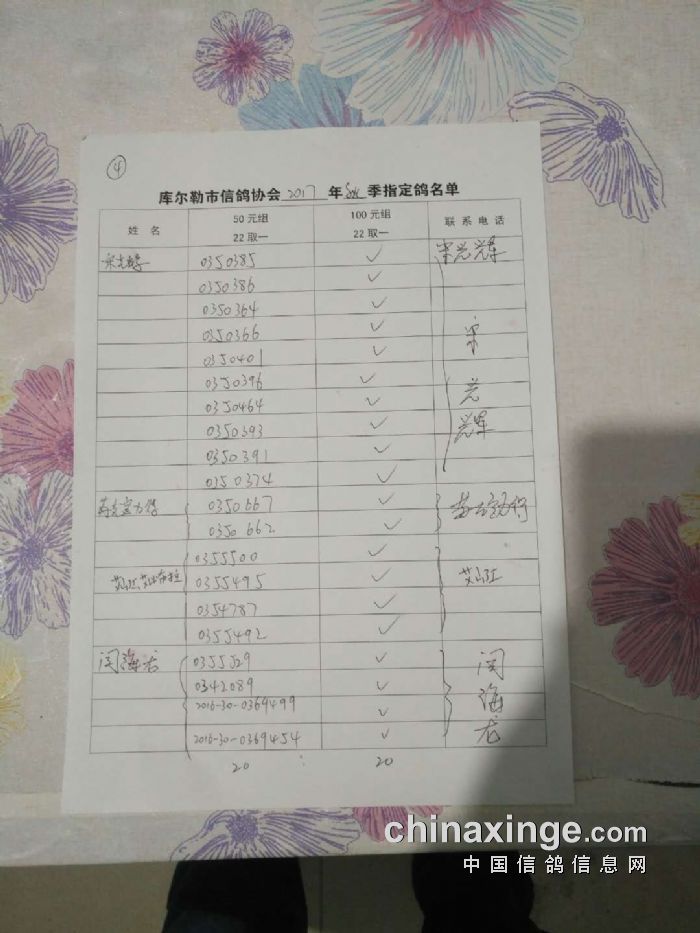 ④
库尔勒市信鸽协会 2017 年 秋 季指定鸽名单
姓 名 50元组 22取一 100元组 22取一 联系电话
宋光辉 0350385 ✓ 宋光辉
0350386 ✓
0350364 ✓
0350366 ✓ 宋
0350401 ✓
0350396 ✓ 光
0350464 ✓
0350393 ✓ 辉
0350391 ✓
0350374 ✓
0350667 ✓
0350662 ✓
0355500 ✓
0355495 ✓
0354787 ✓
0355492 ✓
闫海龙 0355529 ✓ 闫
0342089 ✓ 海
2016-30-0369499 ✓
2016-30-0369454 ✓ 龙
20 20
chinaxinge.com
中国信鸽信息网